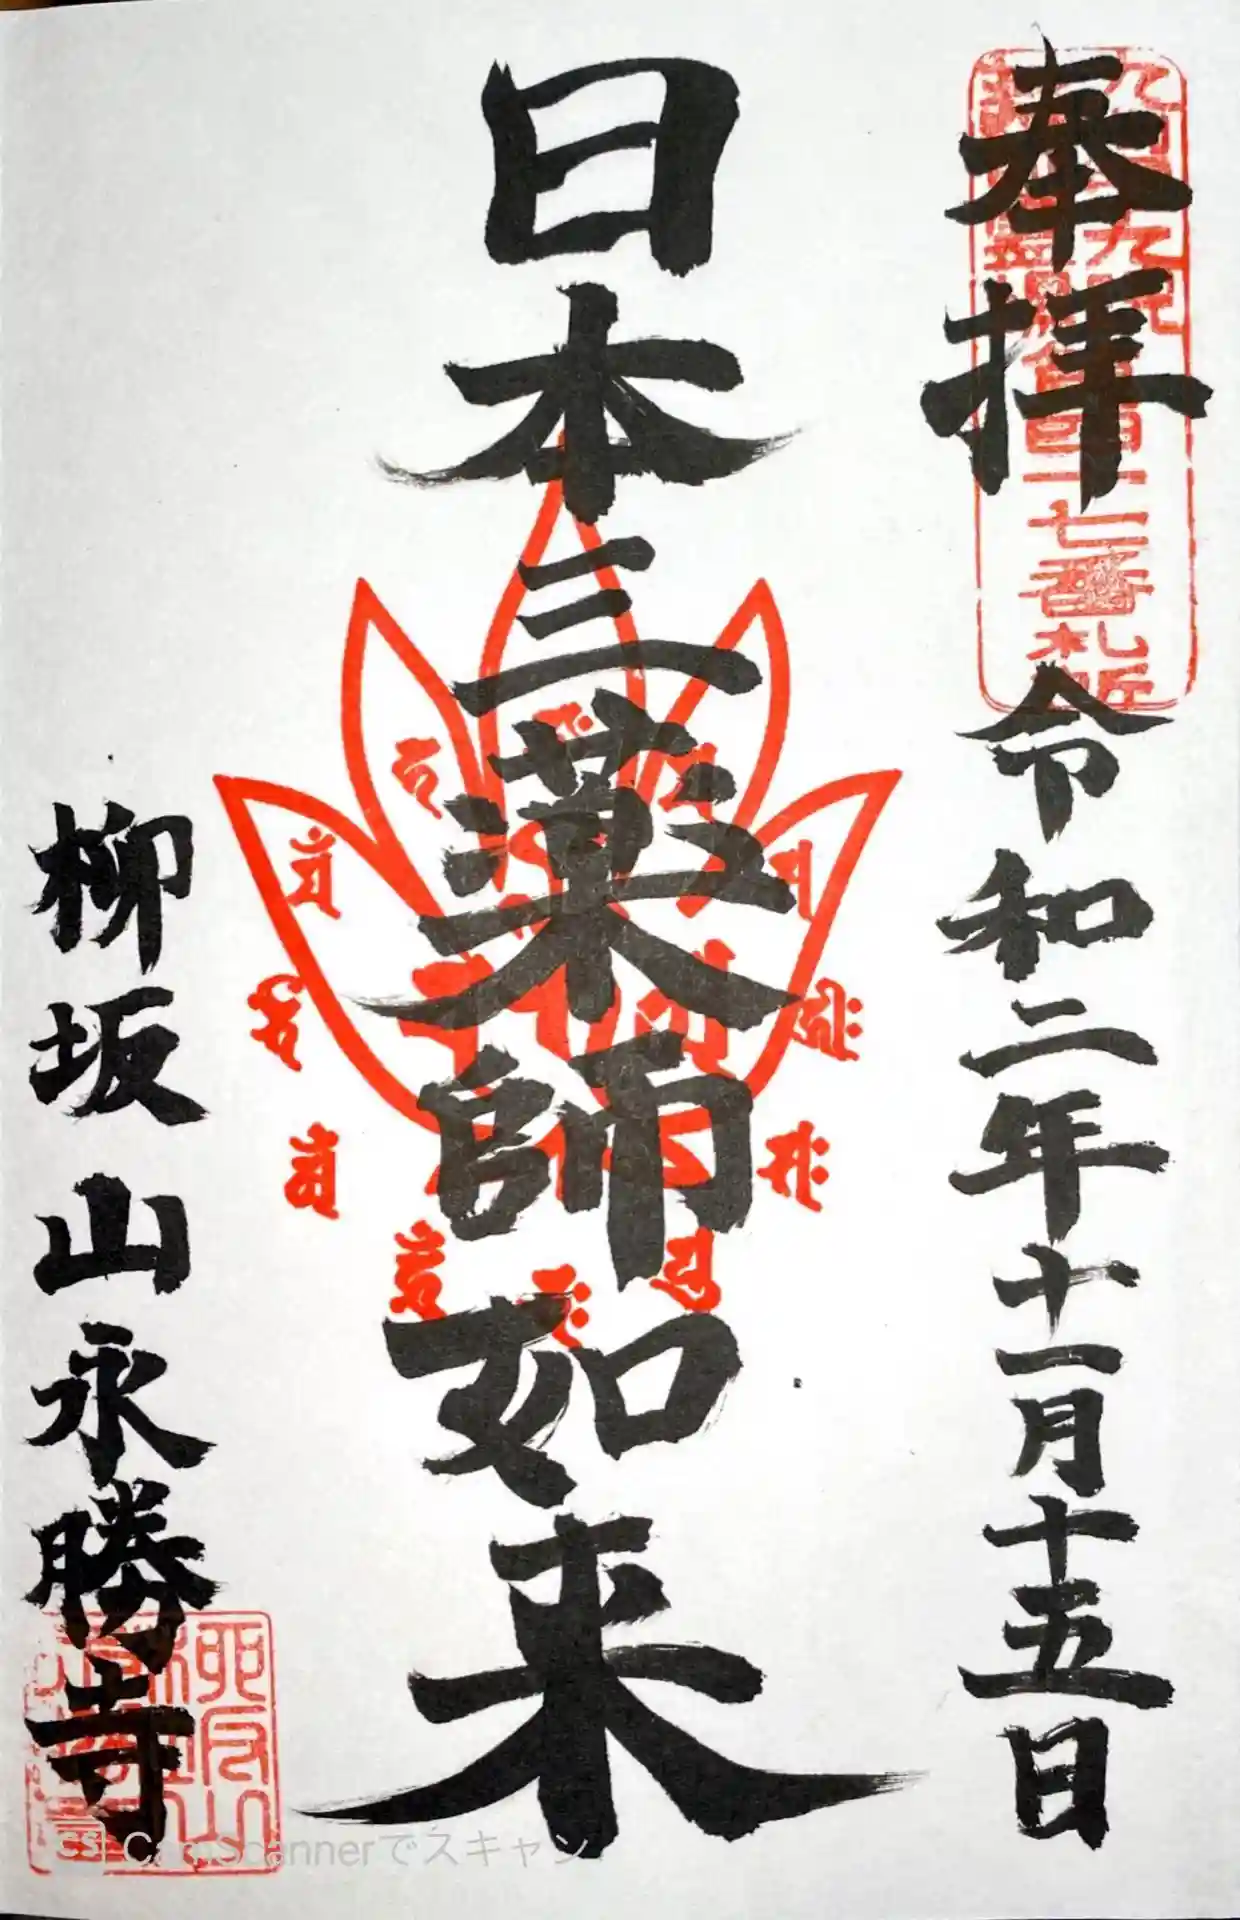 奉拝
令和二年十一月十五日
日本三薬師如来
柳坂山永勝寺
七番札所
柳坂山
CS CamScannerでスキャン